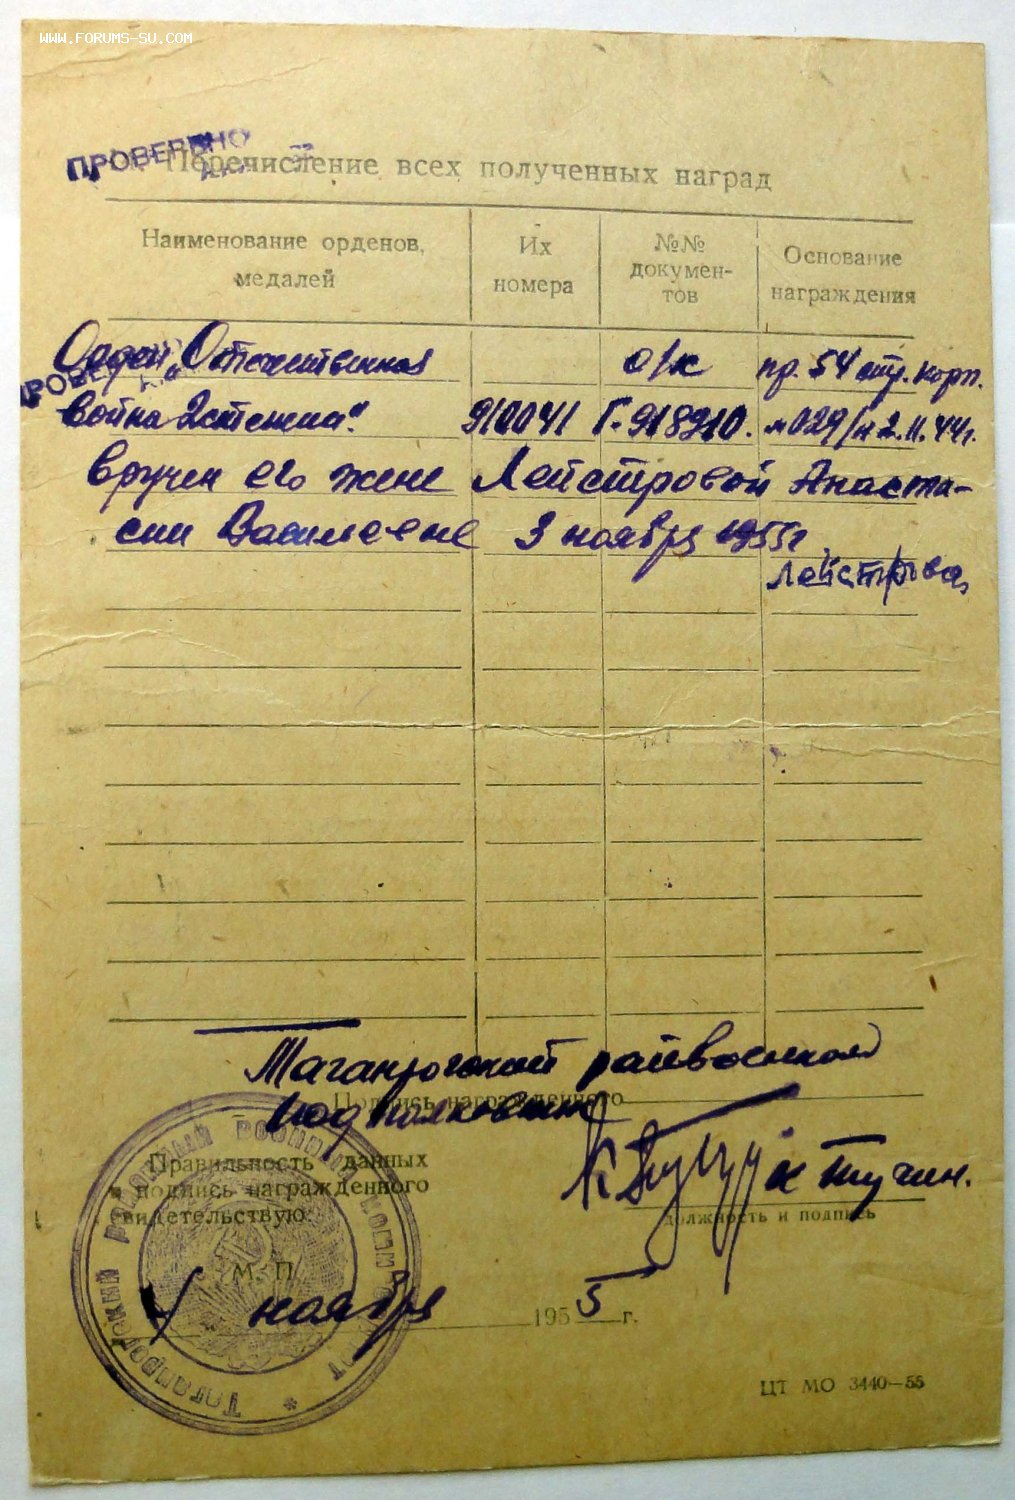 WWW.FORUMS-SU.COM
ПРОВЕРЕНО
Перечисление всех полученных наград
Наименование орденов, медалей
Их номера
№№ документов
Основание награждения
ПРОВЕРЕНО
Орден „Отечественная о/к пр. 54 стр. корп.
война 2 степени". 910041 Г. 918910. №029/н 2.11.44г.
вручен его жене Лейстровой Анаста-
сии Василевне 3 ноября 1955г
Лейстрова
Таганрогский райвоенком
Подпись награжденного
подполковник
Правильность данных
и подпись награжденного
свидетельствую:
к Тучин.
должность и подпись
М. П.
4 ноября 1955 г.
Таганрогский районный военный комиссариат
ЦТ МО 3440—55